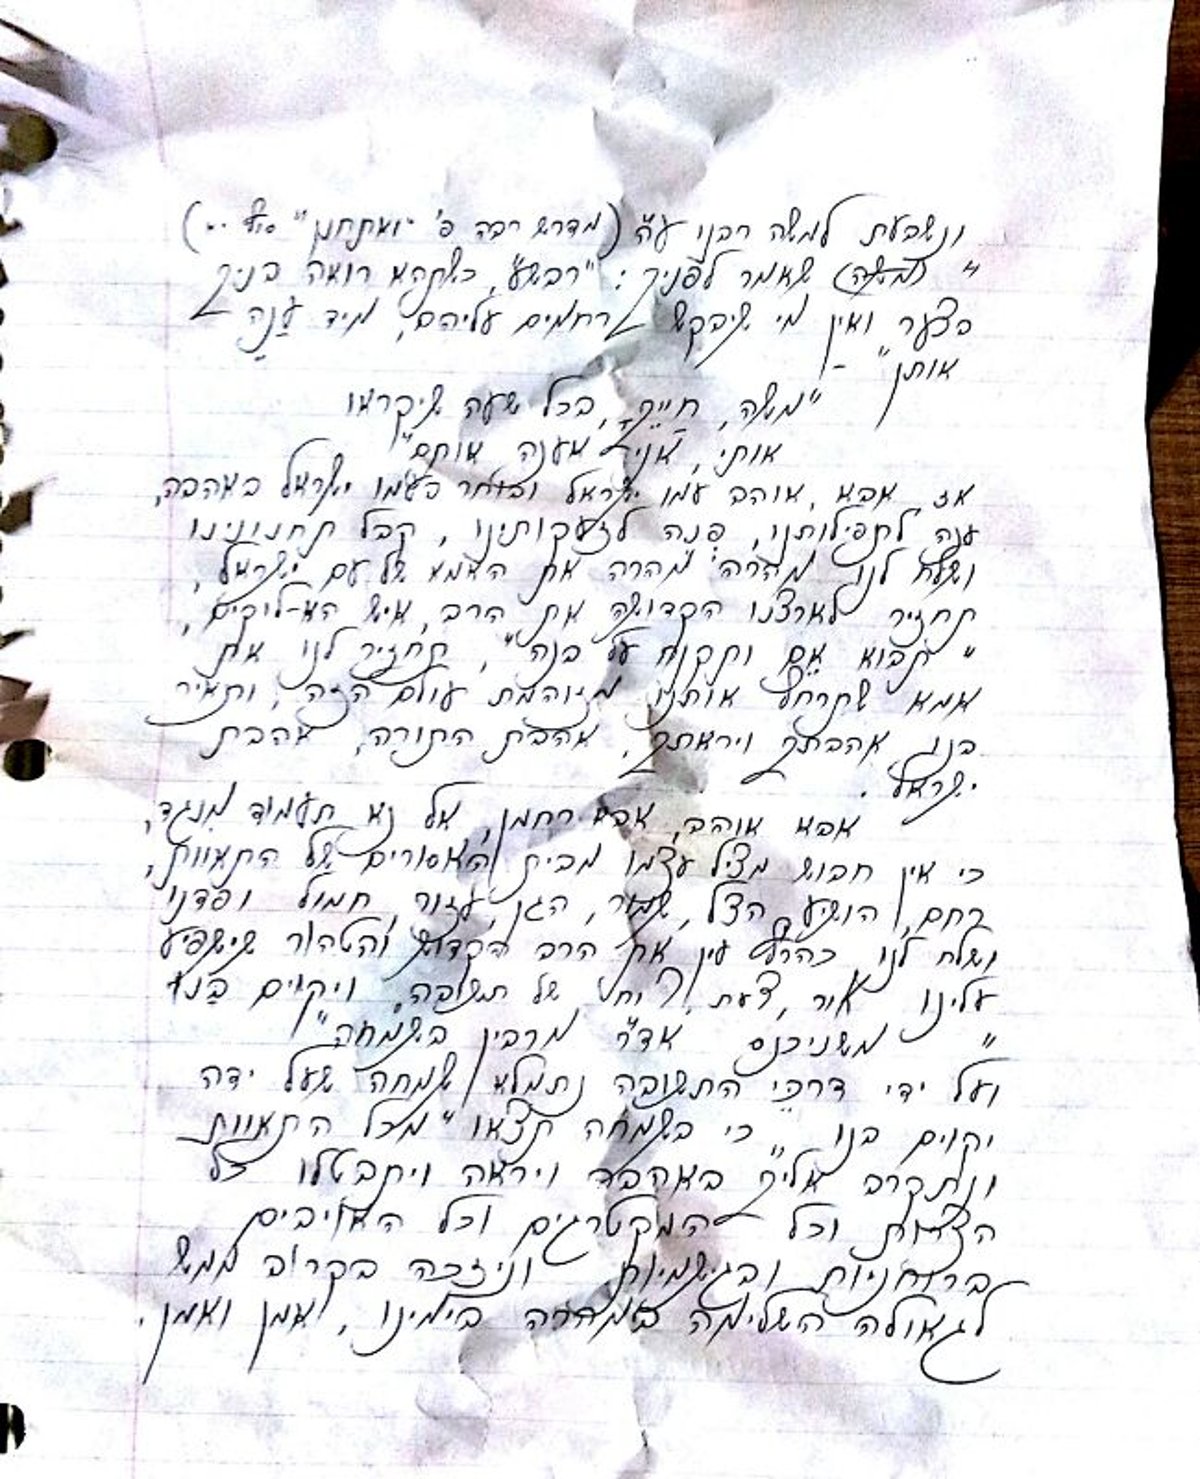 ונשבעת למשה רבנו ע"ה (מדרש רבה פ' "ואתחנן"
" (משה) שאמר לפניך: "רבש"ע, כשתהא רואה בניך
בצער ואין מי שיבקש רחמים עליהם, מיד עֲנֵה
אותן" -
"משה, חַיֶּיךָ, בכל שעה שיקראו
אותי, אֲנִי אענה אותם"
אז אבא אוהב עמו ישראל ובוחר בעמו ישראל באהבה,
ענה לתפילותנו, פְּנֵה לזעקותינו, קבל תחנונינו
ושלח לנו מהרה מהרה את האמא של עם ישראל,
תחזיר לארצנו הקדושה את הרב, איש הא-לוקים,
"תבוא אֵם ותקנח על בנה", תחזיר לנו את
אמא שתרחץ אותנו מזוהמת עולם הזה, ותאיר
בנו אהבתך ויראתך, אהבת התורה, אהבת
ישראל.
אבא אוהב, אבא רחמן, אל נא תעמוד מנגד,
כי אין חבוש מציל עצמו מבית האסורים של התאוות,
רחם, הושיע, הצל, שמור, הגן, עזור, חמול ופדני
ושלח לנו כהרף עין את הרב הקדוש והטהור שישפיע
עלינו אור, דעת, רוח של תשובה, ויקוים בנו
" משניכנס אד"ר מרבין בשמחה"
ועל ידי דרכי התשובה נתמלא שמחה שעל ידה
יקוים בנו "כי בשמחה תצאו" מכל התאוות
ונתקרב אליך באהבה ויראה ויתבטלו כל
הצרות וכל המקטרגים וכל האויבים
ברוחניות ובגשמיות וניזכה בקרוב ממש
לגאולה השלימה במהרה בימינו, אמן ואמן.